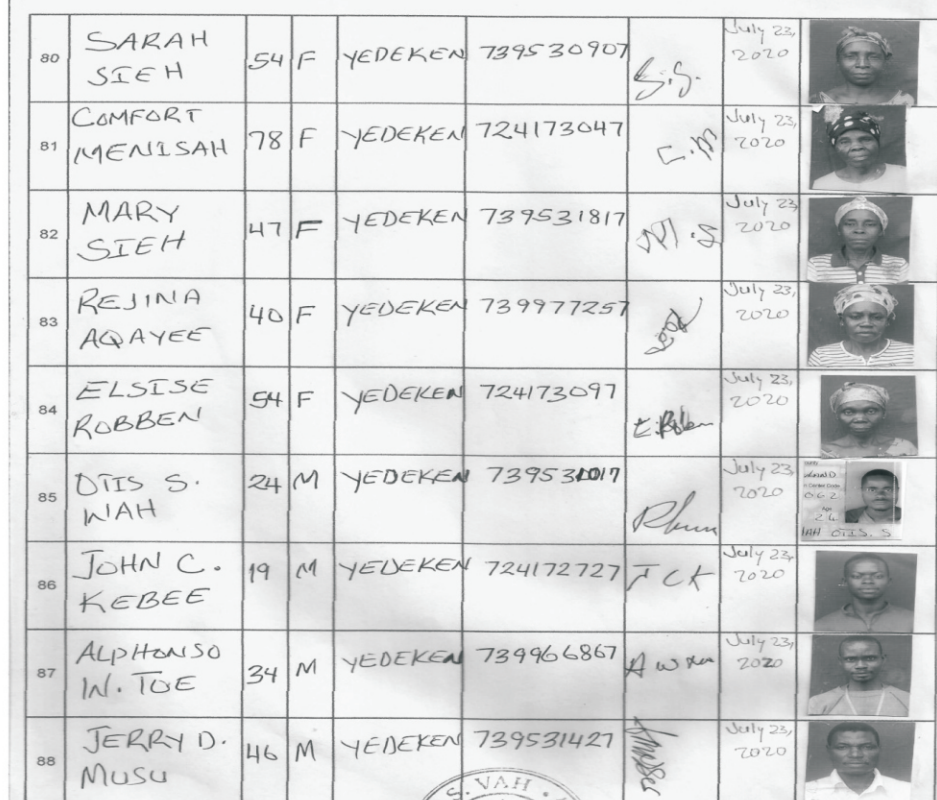 80 SARAH SIEH 54 F YEDEKEN 739530907 S.S. July 23, 2020
81 COMFORT MENISAH 78 F YEDEKEN 724173047 C.M July 23, 2020
82 MARY SIEH 47 F YEDEKEN 739531817 M.S July 23, 2020
83 REJINA AQAYEE 40 F YEDEKEN 739977257 July 23, 2020
84 ELSISE ROBBEN 54 F YEDEKEN 724173097 July 23, 2020
85 OTIS S. WAH 24 M YEDEKEN 739531017 July 23, 2020
062
Age
24
WAH OTIS. S
86 JOHN C. KEBEE 19 M YEDEKEN 724172727 J C K July 23, 2020
87 ALPHONSO W. TOE 34 M YEDEKEN 739966867 July 23, 2020
88 JERRY D. MUSU 46 M YEDEKEN 739531427 July 23, 2020
S. VAH